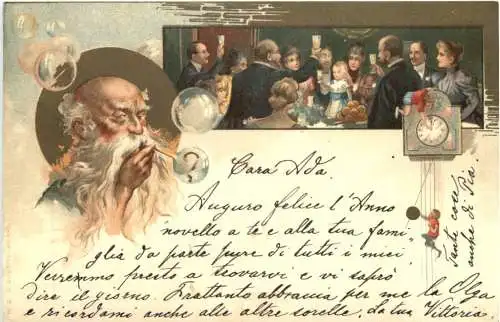 Cara Ada.
Auguro felice l'Anno
novello a te e alla tua fami-
glia da parte pure di tutti i miei
Verremmo presto a trovarvi e vi saprò
dire il giorno. Frattanto abbraccia per me la Olga
e ricordami anche alle altre sorelle. La tua Vittoria.
Tante cose
anche di Pia.
?